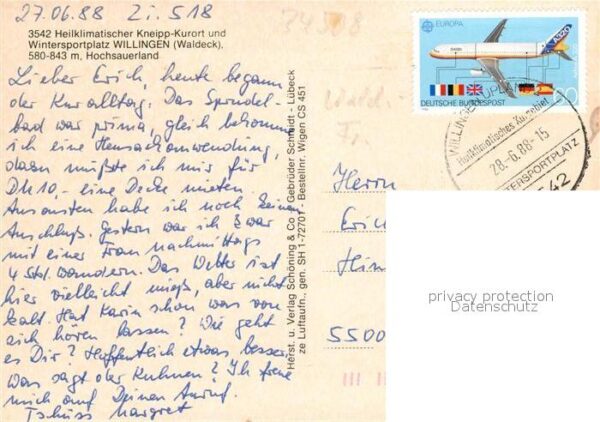 27.06.88 Zi. 518
3542 Heilklimatischer Kneipp-Kurort und
Wintersportplatz WILLINGEN (Waldeck),
580-843 m, Hochsauerland
Lieber Erich, heute begann
der Kuralltag. Das Sprudel-
bad war prima, gleich bekomme
ich eine Heusackanwendung,
dazu mußte ich mir für
DM 10,- eine Decke mieten.
Ansonsten habe ich noch keinen
Anschluß. Gestern war ich zwar
mit einer Frau nachmittags
4 Std. wandern. Das Wetter ist
hier vielleicht mies, aber nicht
kalt. Hat Karin schon was von
sich hören lassen? Wie geht
es Dir? Hoffentlich etwas besser
was sagt der Kuhnen? Ich freue
mich auf Deinen Anruf.
Tschüss Margret
Horst. u. Verlag Schöning & Co + Gebrüder Schmidt - Lübeck
ze Luftaufn., gen. SH 1-72701 - Bestellnr. Wigen CS 451
74508
EUROPA
A320
DEUTSCHE BUNDESPOST
WILLINGEN, UPLAND
Heilklimatisches Kurgebiet
28.-6.88-15
WINTERSPORTPLATZ
3542
Herrn
Erich
5500
privacy protection
Datenschutz